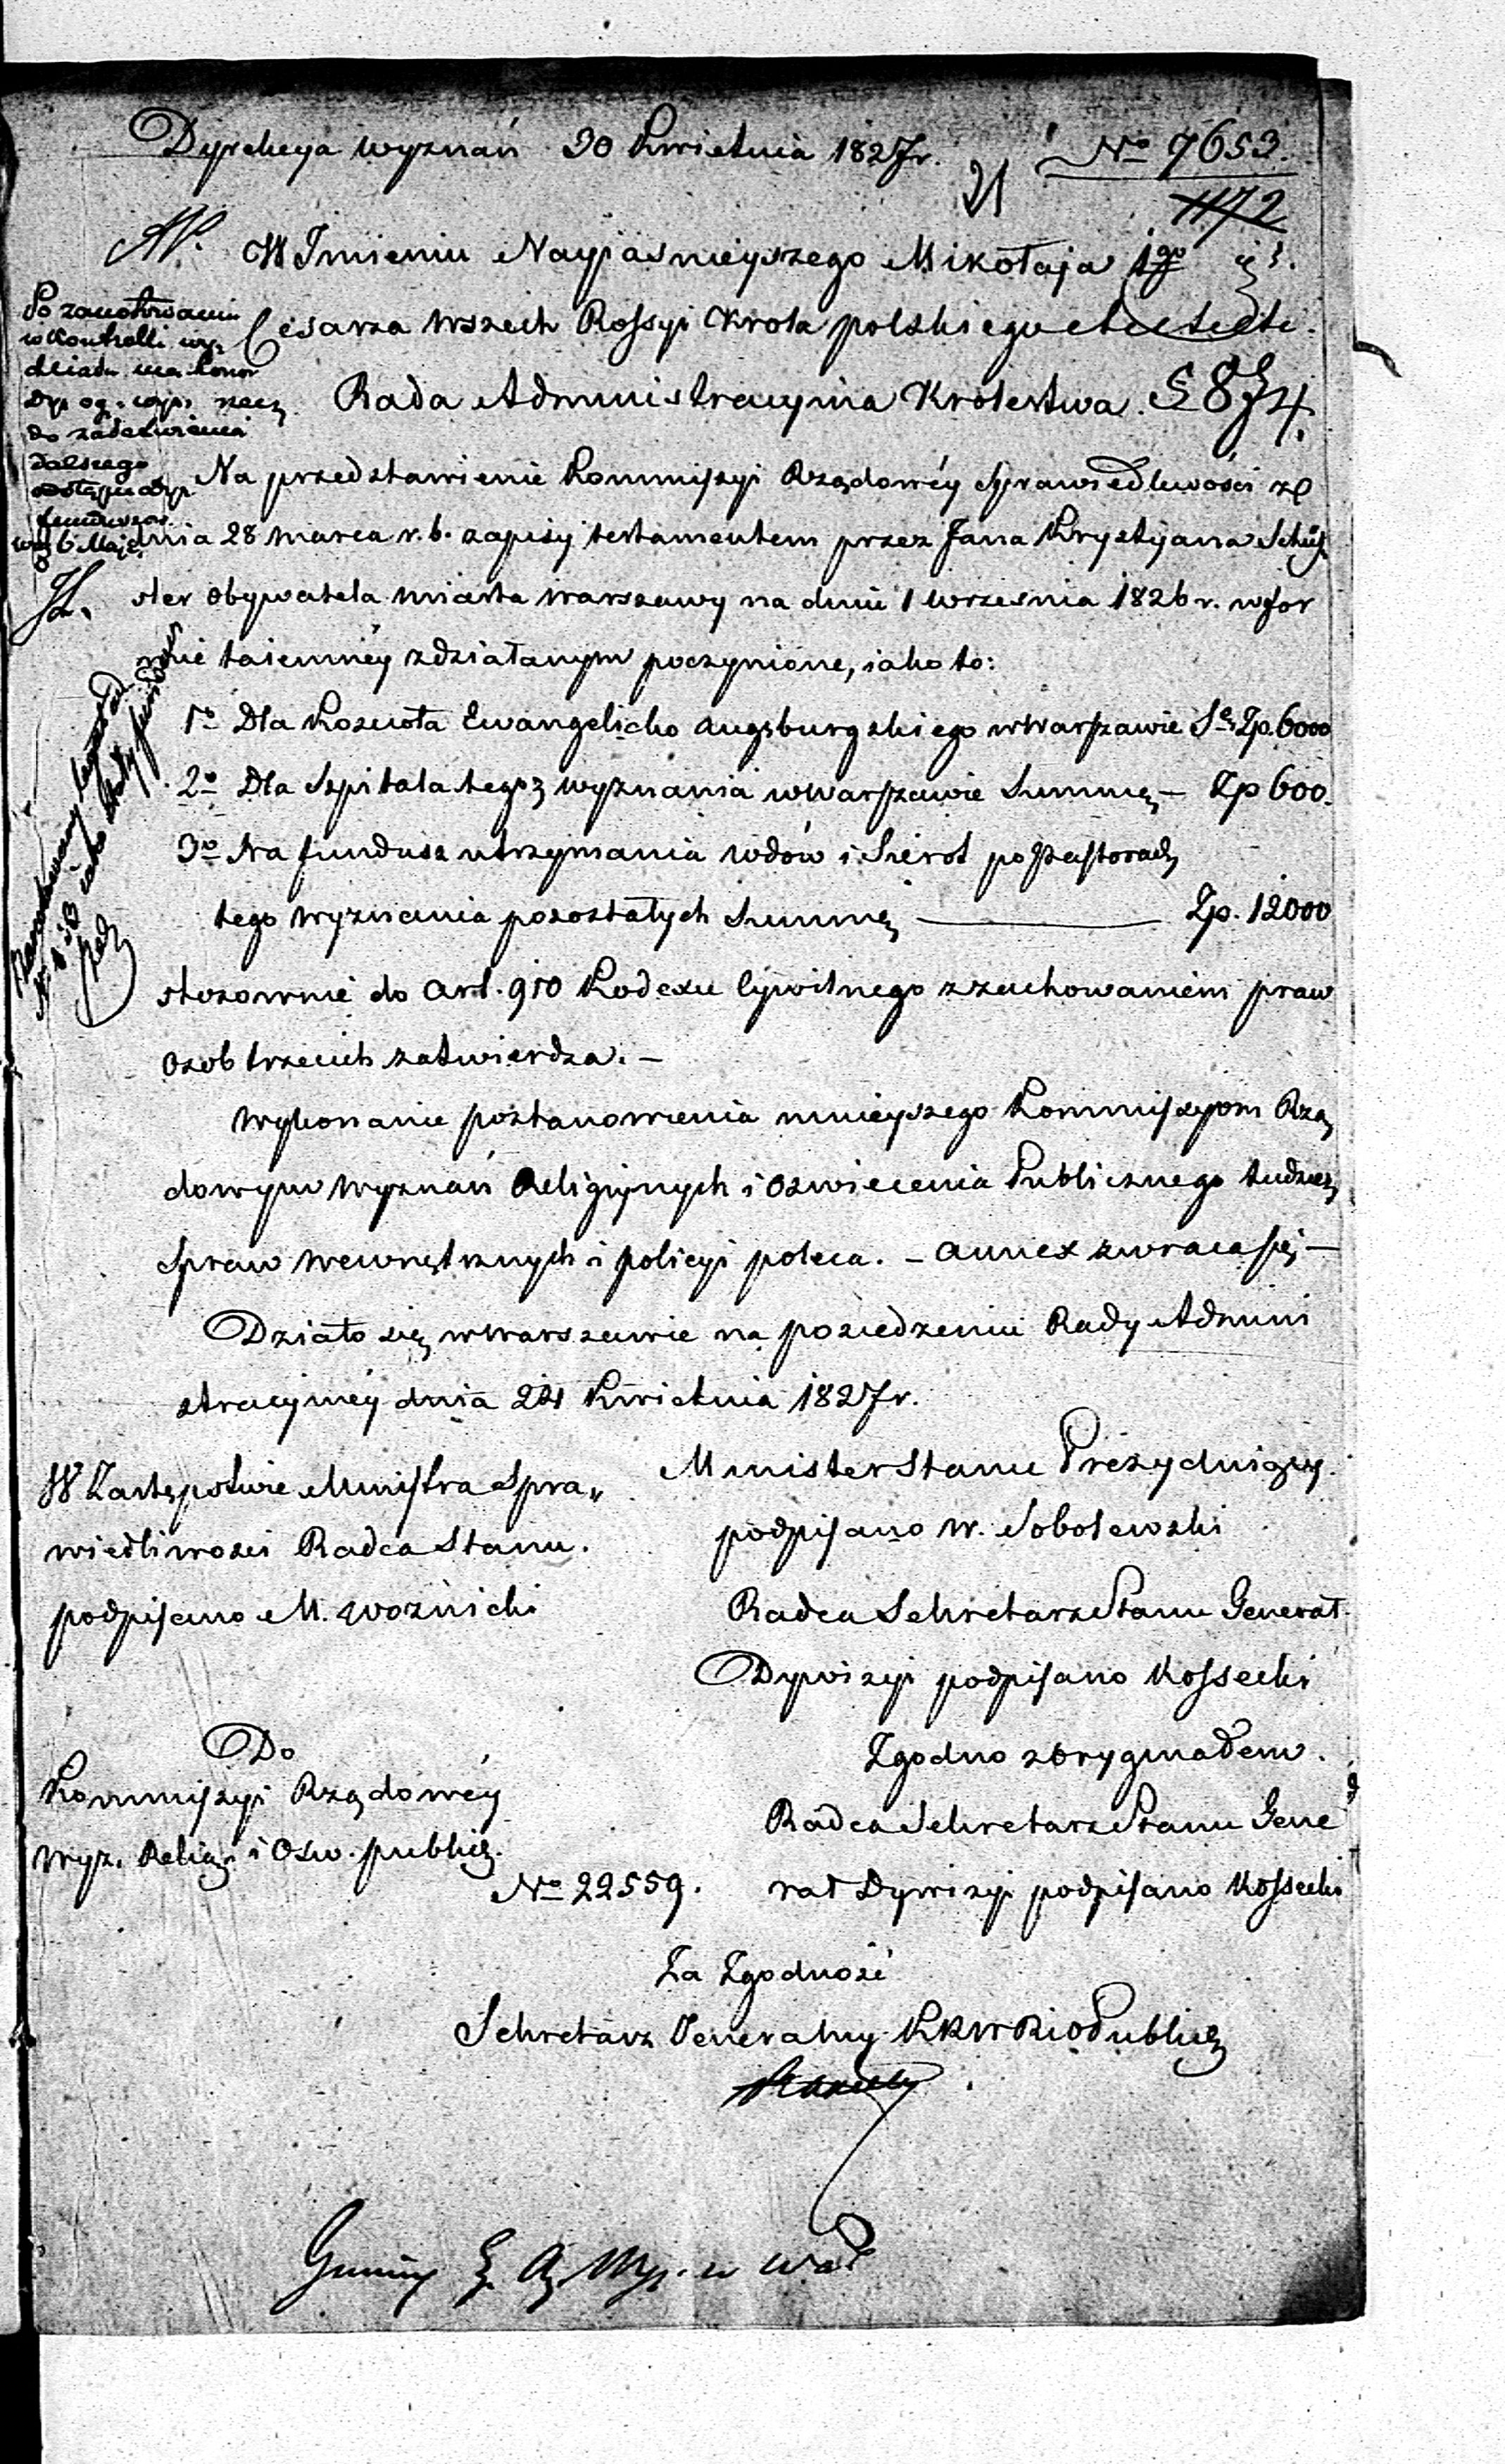 Dyrekcya wyznań 30 Kwietnia 1827 r.
No 7653.
21
1172
W Imieniu Nayjasnieyszego Mikołaja 1go
Cesarza wszech Rossyi Krola polskiego etc etc etc.
Rada Administracyina Krolestwa.
Po zanotowaniu
w Kontrolli wy
działu
do załatwienia
dalszego
6 Maja
Na przedstawienie Kommissyi Rządowéy Sprawiedliwości ze
dnia 28 marca r. b. zapisy testamentem przez Jana Krystyjana Schüs
ster Obywatela miasta warszawy na dniu 1 września 1826 r. w for
mie taiemnéy zdziałanym poczynione, iako to:
1o Dla Kościoła Ewangelicko augsburgskiego w Warszawie Sę Zp. 6000
2o Dla Szpitala tegoż wyznania w Warszawie Summę — Zp 600.
3o Na fundusz utrzymania wdów i Sierot po Pastorach
tego wyznania pozostałych Summę — Zp. 12000
stosownie do art. 910 Kodexu Cywilnego z zachowaniem praw
osob trzecich zatwierdza. —
Wykonanie postanowienia ninieyszego Kommissyom Rzą
dowym Wyznań Religiynych i Oswiecenia Publicznego tudzież
Spraw wewnętrznych i policyi poleca. — annex zwraca się —
Działo się w Warszawie na posiedzeniu Rady Admini
stracyinéy dnia 24 Kwietnia 1827 r.
W Zastępstwie Ministra Spra„
wiedliwosci Radca Stanu.
podpisano M. Woznicki
Minister Stanu Prezyduiący.
podpisano W. Sobolewski
Radca Sekretarz Stanu Generał
Dywizyi podpisano Kossecki
Do
Kommissyi Rządowéy
Wyz. Relig. i Osw. publicz.
No 22559.
Zgodno z oryginałem.
Radca Sekretarz Stanu Gene
rał Dywizyi podpisano Kossecki
Za Zgodność
Sekretarz Generalny KRWRiOPublicz
Gminy E. A. Wyz. w